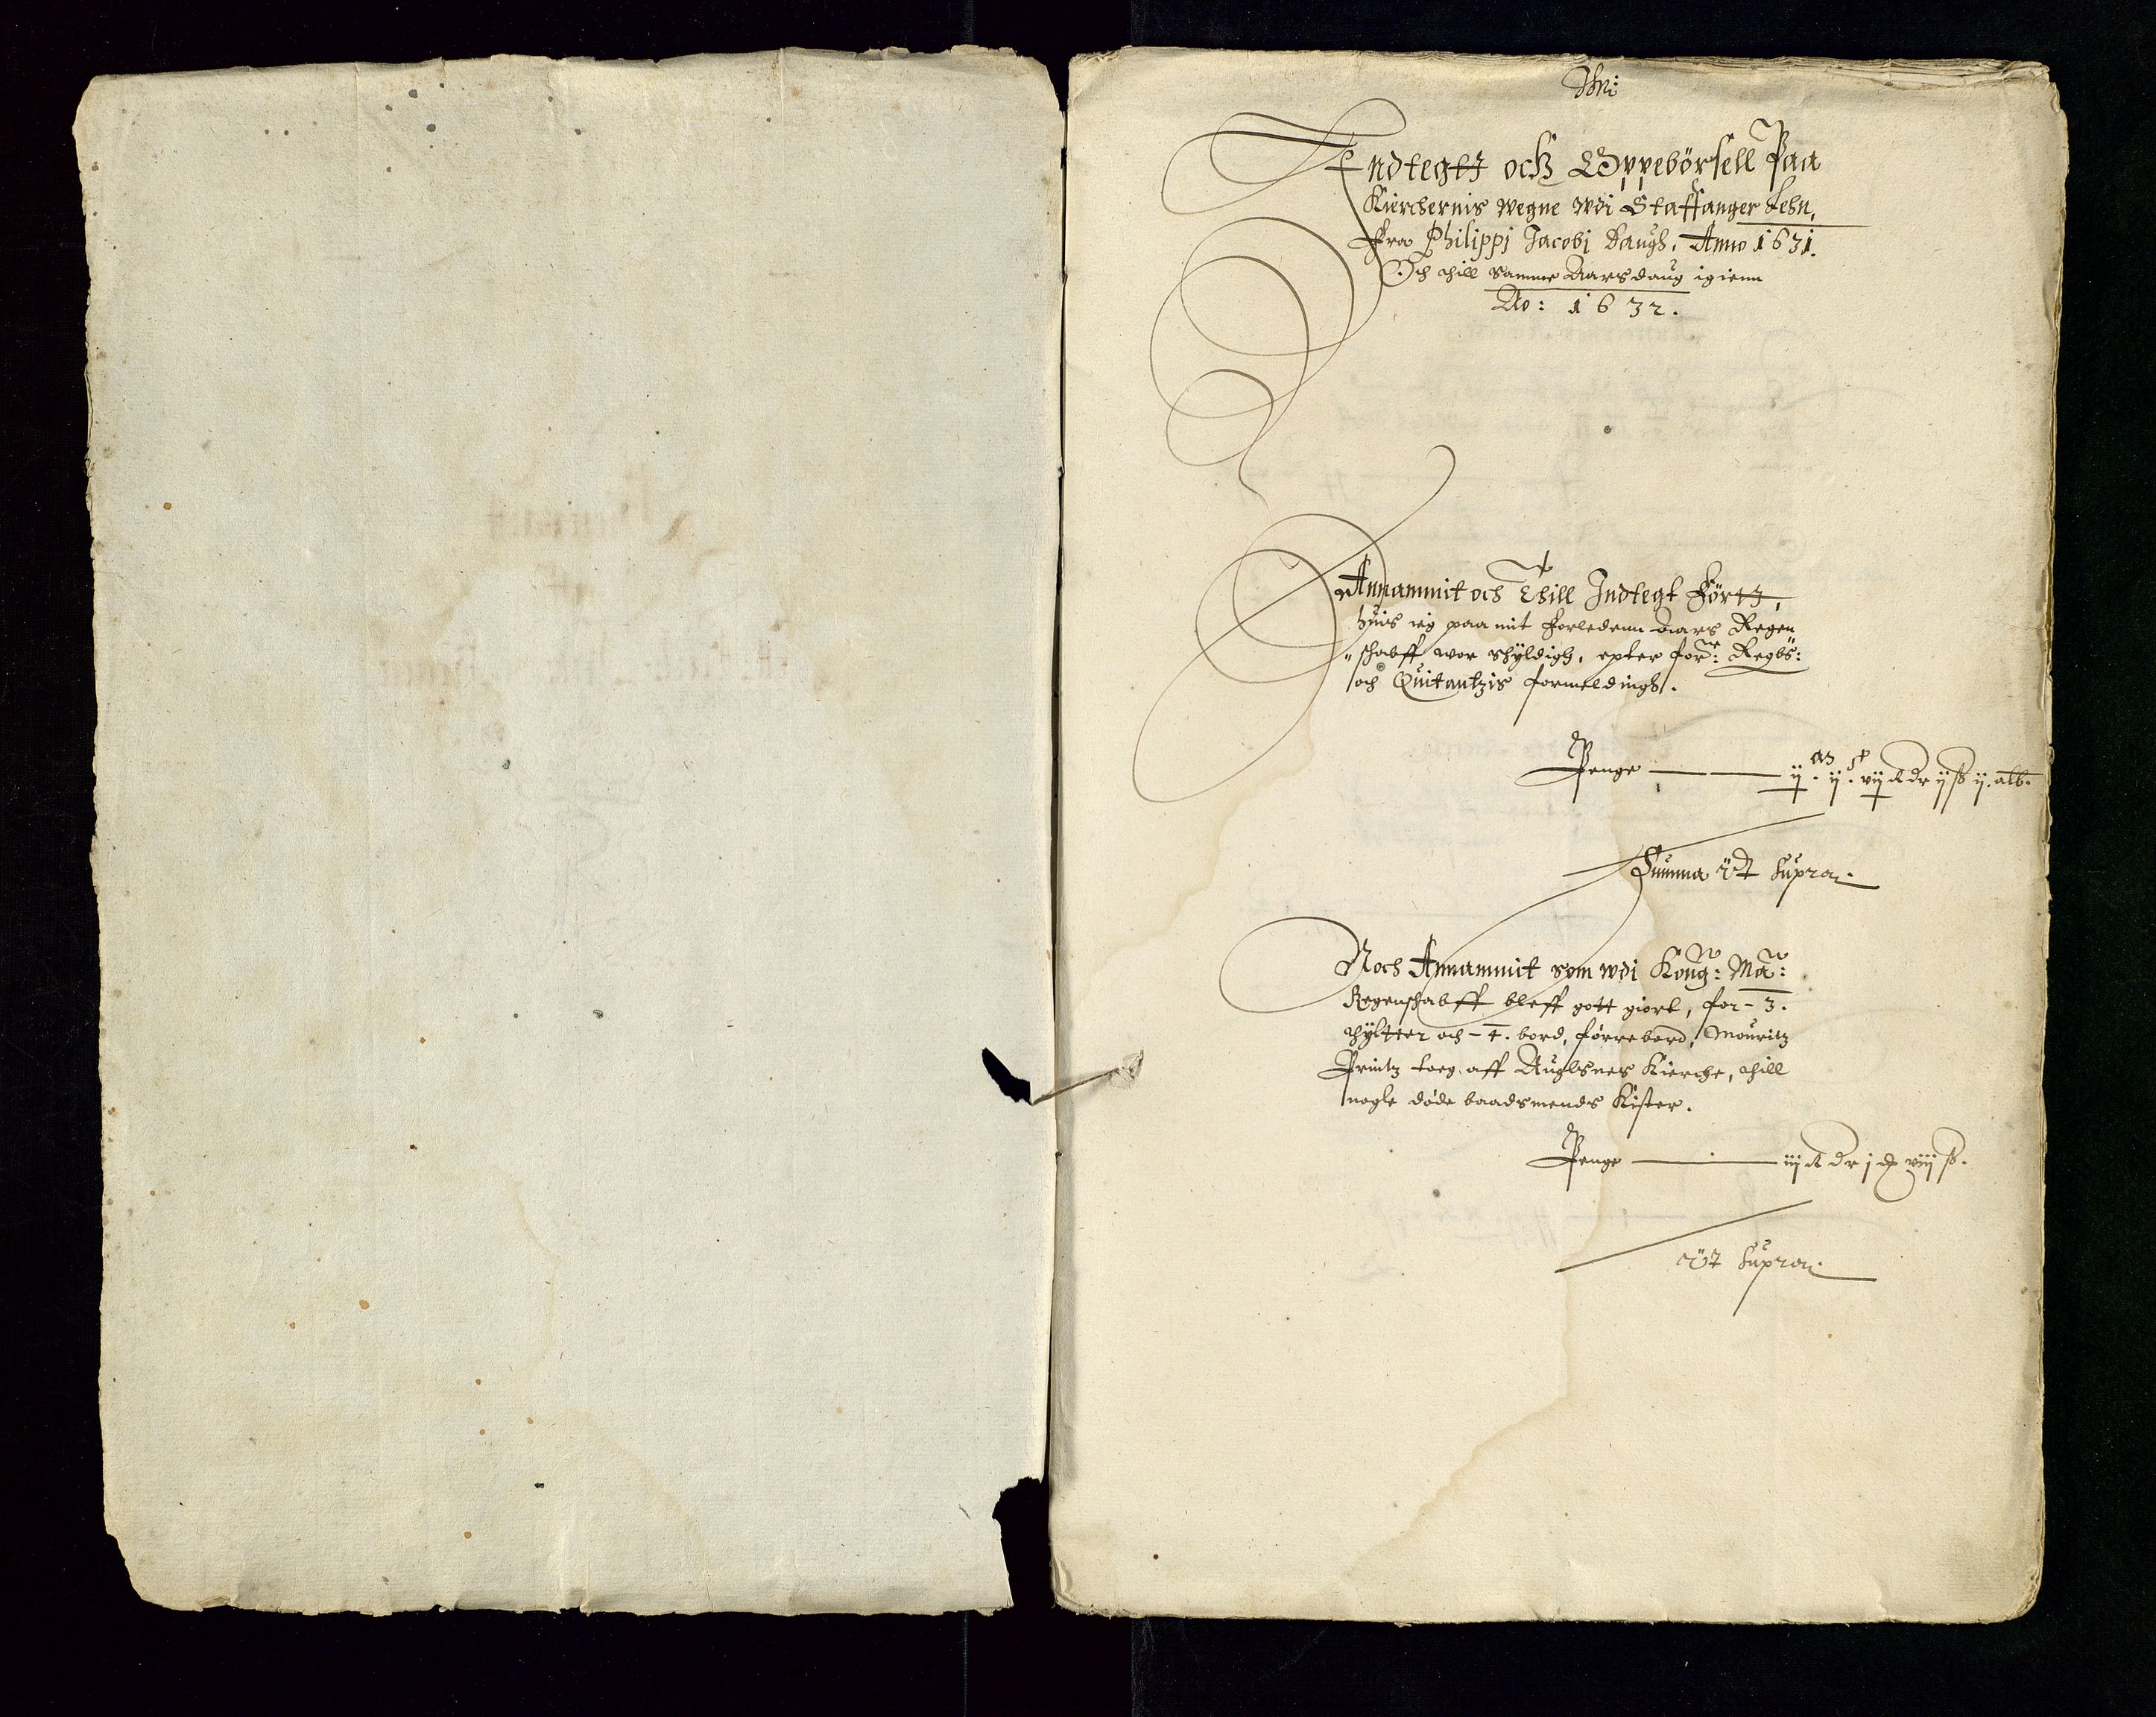 Jhs:
Indtegtt och Oppebörsell Paa
Kierchernis wegne wdi Staffanger Lehn,
Fra Philippi Jacobi daugh, Anno 1631.
Och thill samme Aarsdaug igienn
Ao: 1632.
Annammit och Thill Indtegt Förtt,
huis ieg paa mit forledenn Aars Regen
"schabff wor schÿldigh, epter forne: Regbs:
och Quitantzis formeldingh.
Penge ij ij vij dr ij ß ij alb.
Summa Ut Supra.
Noch Annammit som wdi Kong: Ma:
Regenschabff bleff gott giort, for - 3.
thÿltter och - 4. bord, förrebord, Mouritz
Printz toeg aff Auglsnes Kierche, thill
nogle döde baadsmends Kister.
Penge iij dr j viij ß.
Ut Supra.